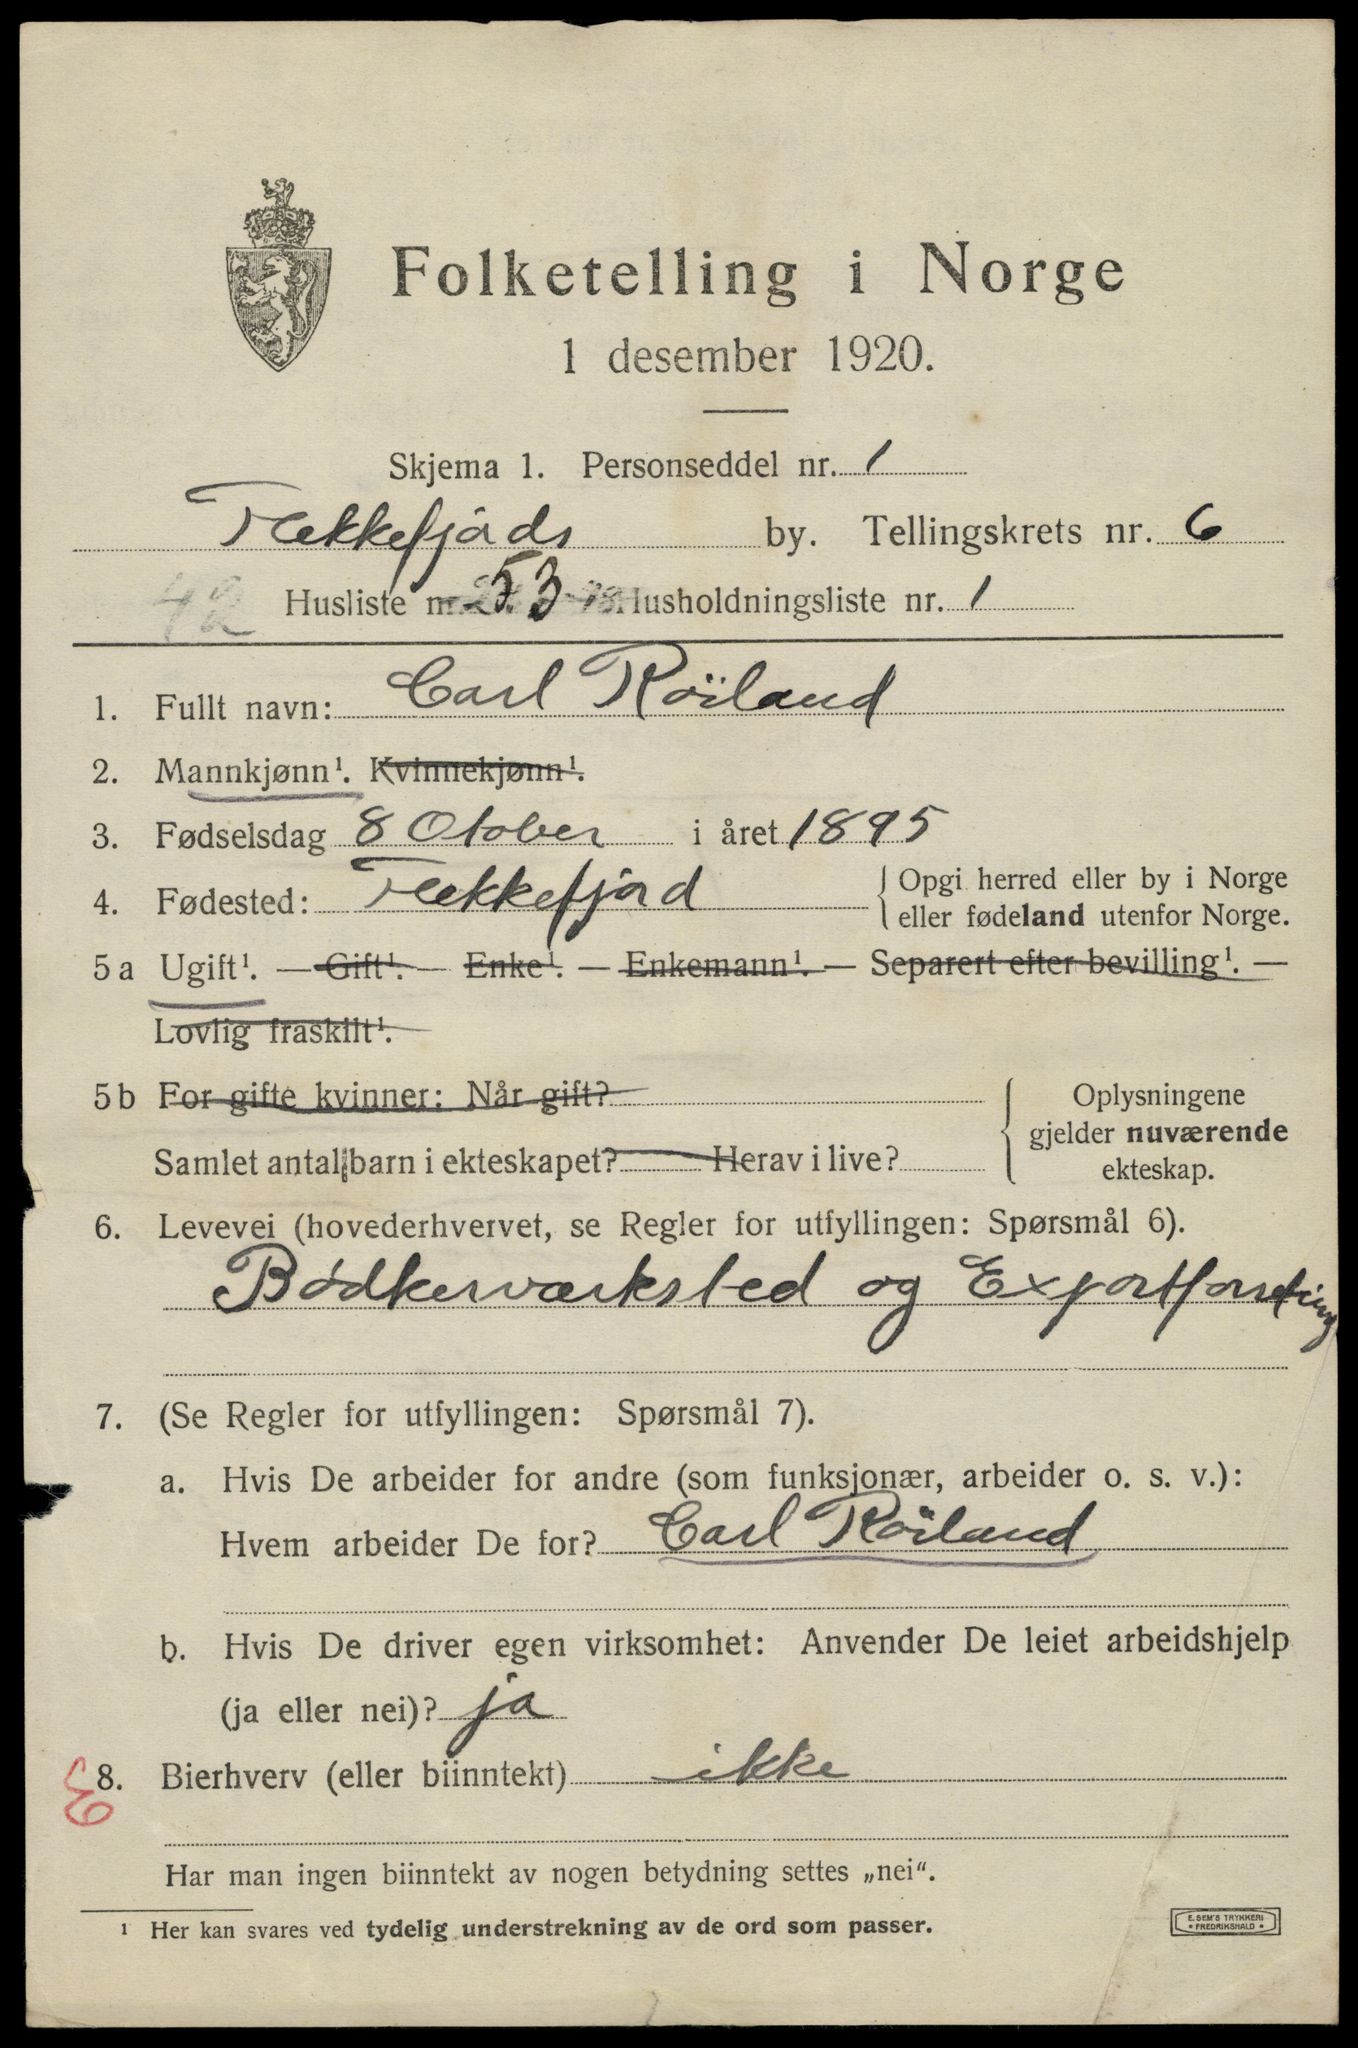 Folketelling i Norge
1 desember 1920.
Skjema 1. Personseddel nr. 1
Flekkefjords by. Tellingskrets nr. 6
42 Husliste nr. 53 Husholdningsliste nr. 1
1. Fullt navn: Carl Röiland
2. Mannkjønn¹. Kvinnekjønn¹.
3. Fødselsdag 8 Otober i året 1895
4. Fødested: Flekkefjord
{ Opgi herred eller by i Norge
eller fødeland utenfor Norge.
5a Ugift¹. — Gift¹. — Enke¹. — Enkemann¹. — Separert efter bevilling¹. —
Lovlig fraskilt¹.
5b For gifte kvinner: Når gift?
Samlet antal barn i ekteskapet? Herav i live?
{ Oplysningene
gjelder nuværende
ekteskap.
6. Levevei (hovederhvervet, se Regler for utfyllingen: Spørsmål 6).
Bødkerværksted og Exportforretning
7. (Se Regler for utfyllingen: Spørsmål 7).
a. Hvis De arbeider for andre (som funksjonær, arbeider o. s. v.):
Hvem arbeider De for? Carl Röiland
b. Hvis De driver egen virksomhet: Anvender De leiet arbeidshjelp
(ja eller nei)? ja
8. Bierhverv (eller biinntekt) ikke
Har man ingen biinntekt av nogen betydning settes „nei“.
¹ Her kan svares ved tydelig understrekning av de ord som passer.
E. SEM'S TRYKKERI
• FREDRIKSHALD •